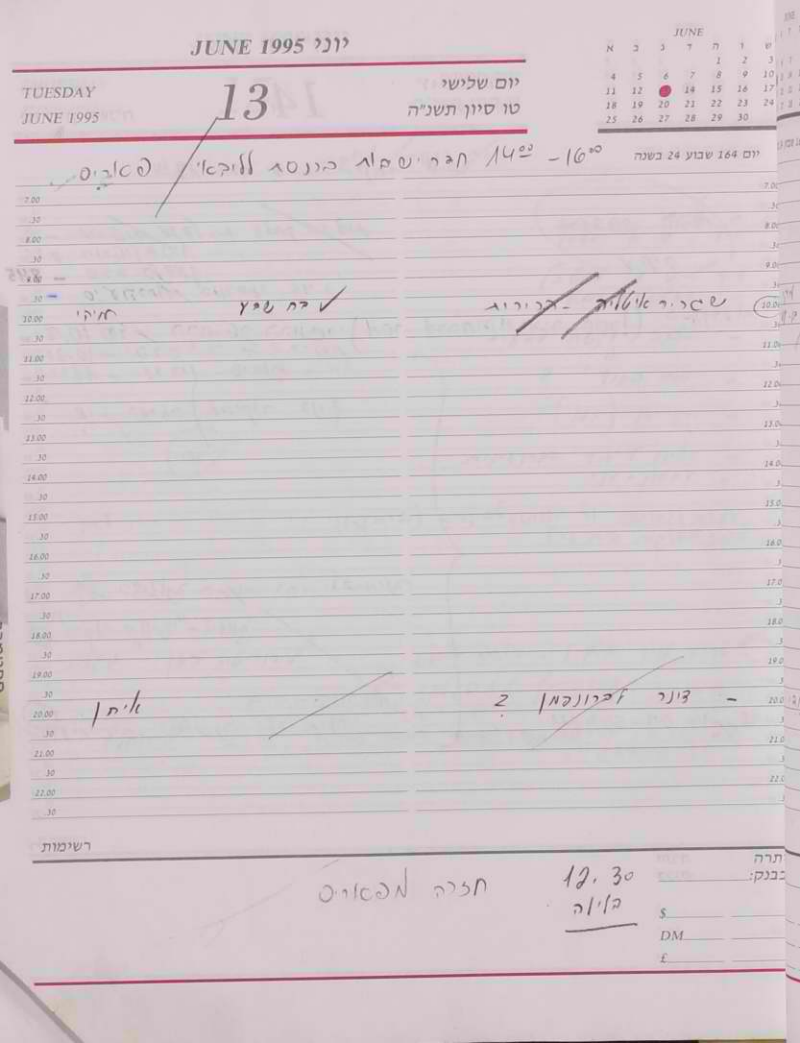 JUNE 1995 יוני
JUNE
א ב ג ד ה ו ש
1 2 3
4 5 6 7 8 9 10
11 12 14 15 16 17
18 19 20 21 22 23 24
25 26 27 28 29 30
TUESDAY
JUNE 1995
13
יום שלישי
טו סיון תשנ"ה
יום 164 שבוע 24 בשנה
14:00 - 16:00
פאריס
7.00
.30
8.00
.30
9.00
.30
שגריר איטליה - בכירות
10.00
.30
11.00
.30
12.00
.30
13.00
.30
14.00
.30
15.00
.30
16.00
.30
17.00
.30
18.00
.30
19.00
.30
- דינר לברונפמן ?
איתן
20.00
.30
21.00
.30
22.00
.30
רשימות
12.30
חזרה מפאריס
בלילה
$
DM
£